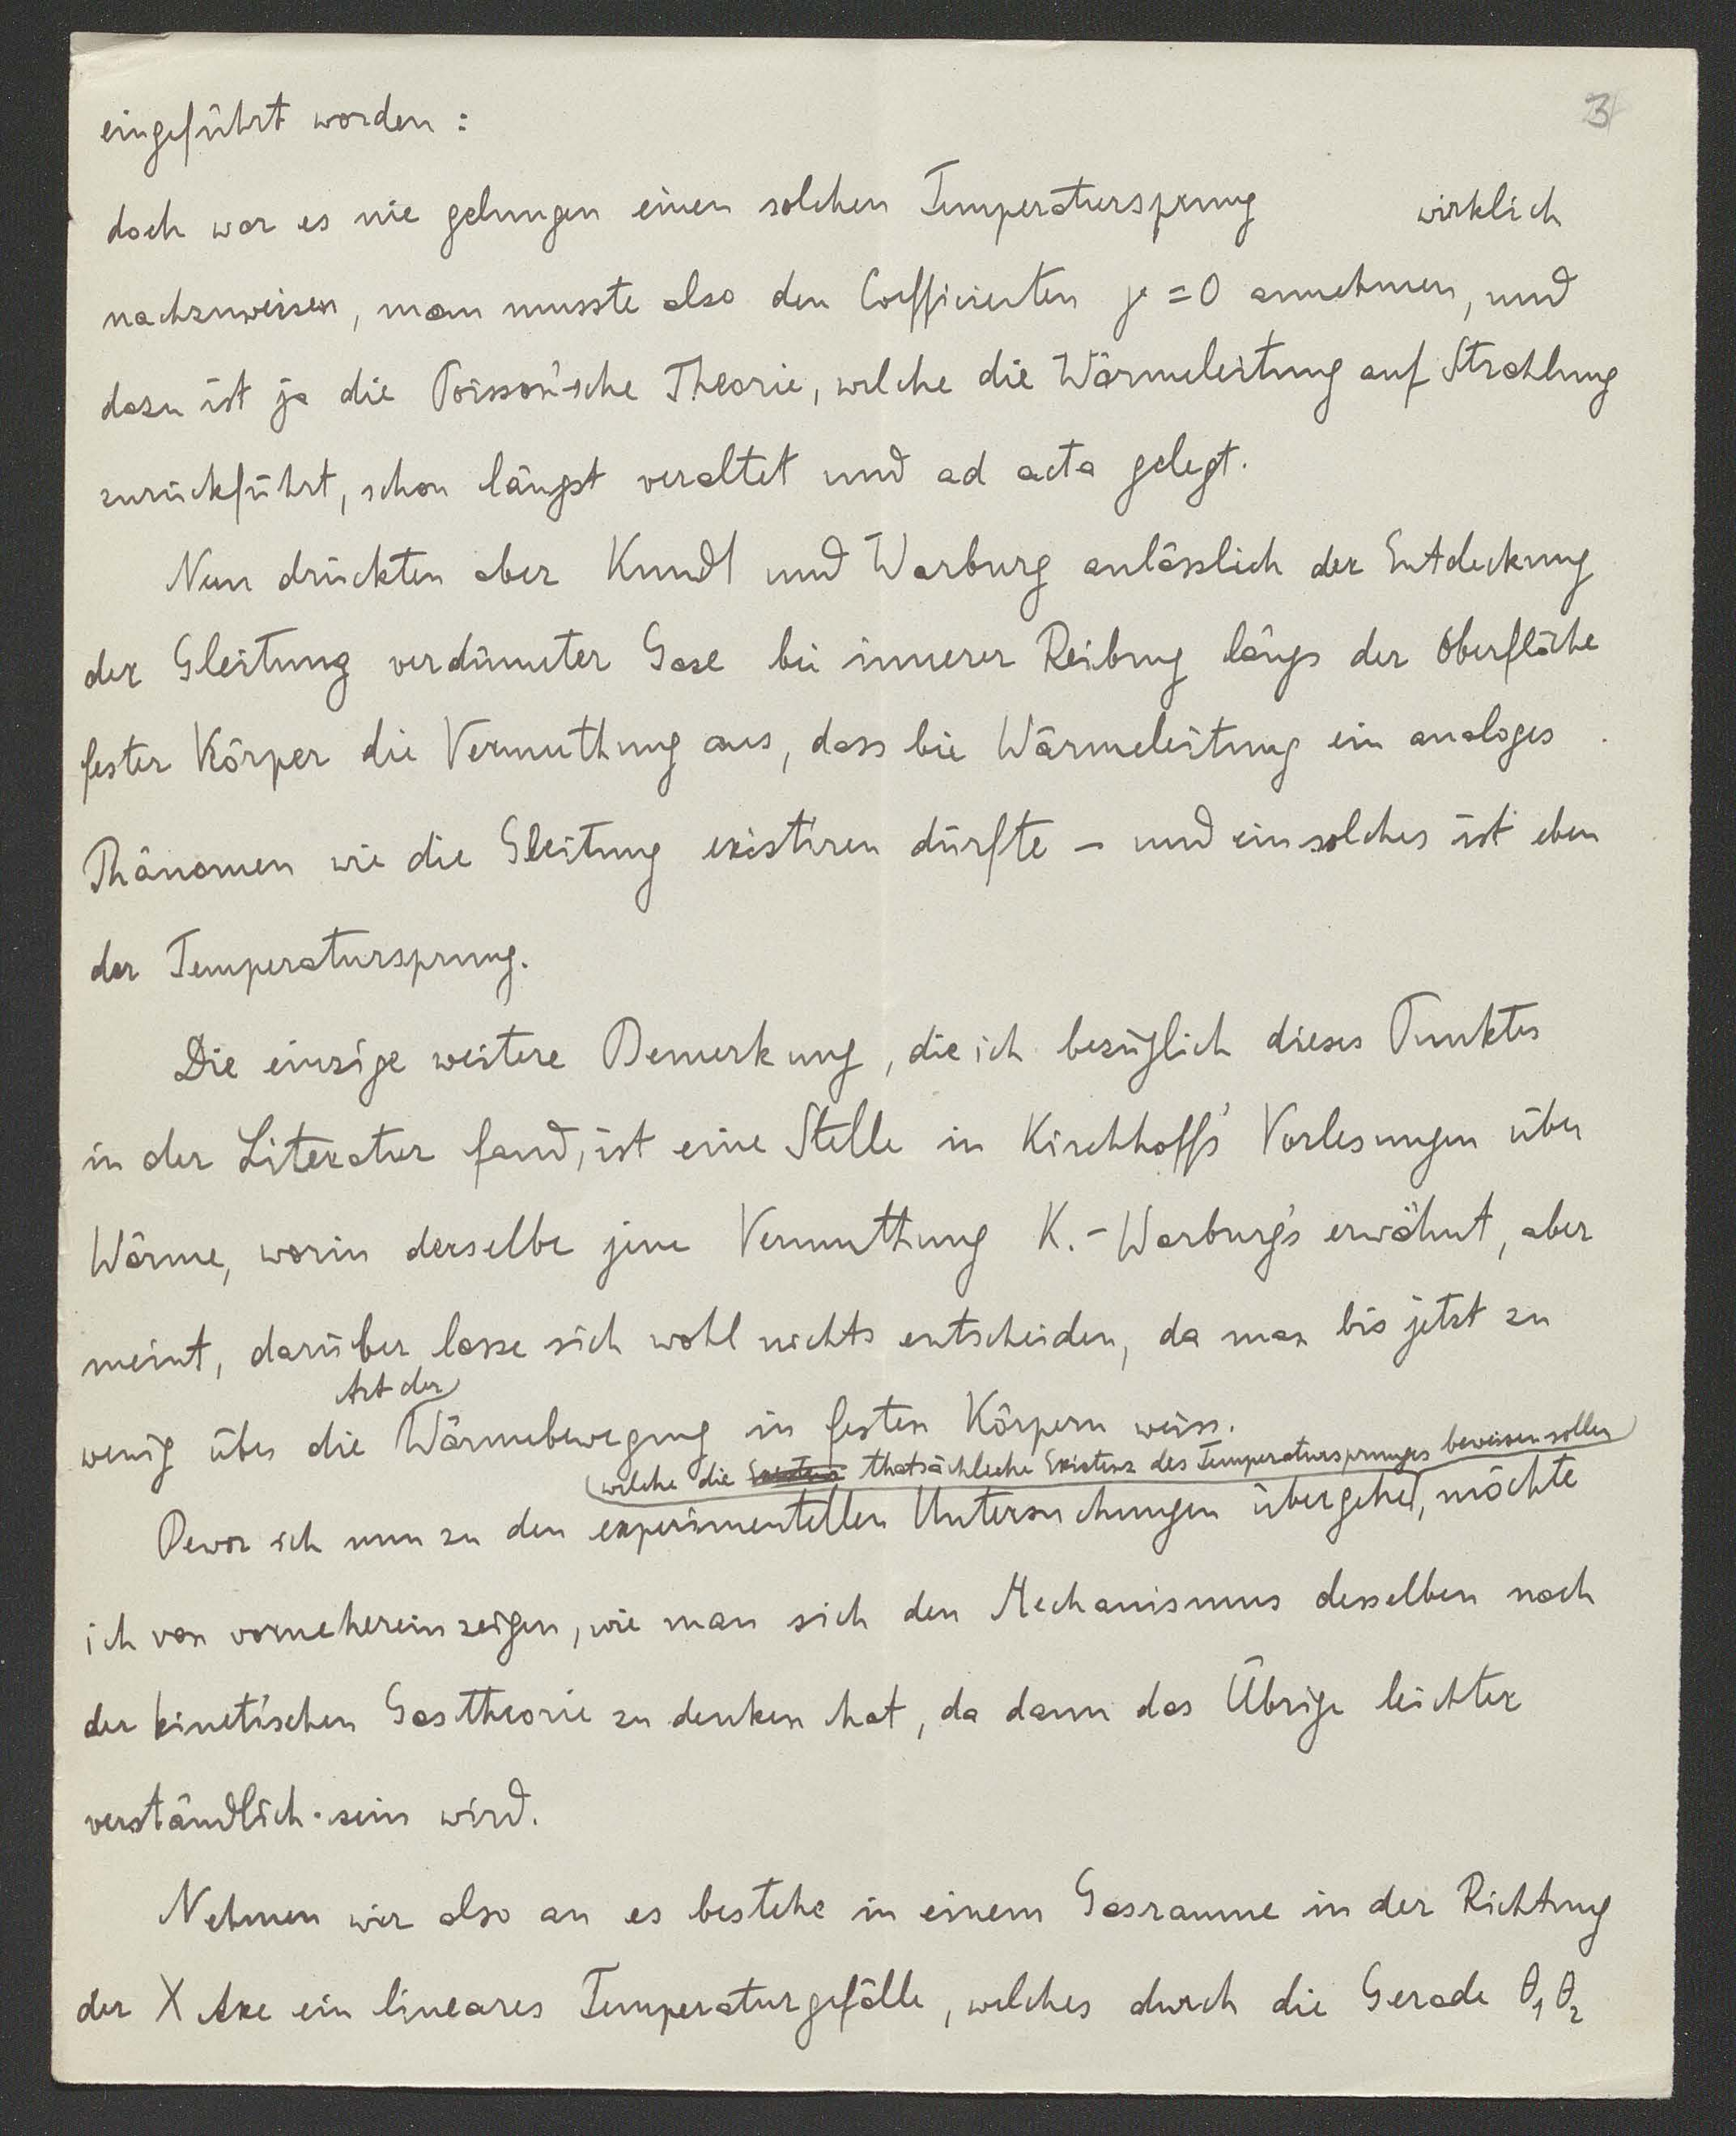 3
eingeführt worden :
doch war es nie gelungen einen solchen Temperatursprung wirklich
nachzuweisen, man musste also den Coefficienten γ = 0 annehmen, und
dazu ist ja die Poisson'sche Theorie, welche die Wärmeleitung auf Strahlung
zurückführt, schon längst veraltet und ad acta gelegt.
Nun drückten aber Kundt und Warburg anlässlich der Entdeckung
der Gleitung verdünnter Gase bei innerer Reibung längs der Oberfläche
fester Körper die Vermuthung aus, dass bie Wärmeleitung ein analoges
Phänomen wie die Gleitung existiren dürfte – und ein solches ist eben
der Temperatursprung.
Die einzige weitere Bemerkung, die ich bezüglich dieses Punktes
in der Literatur fand, ist eine Stelle in Kirchhoff's Vorlesungen über
Wärme, worin derselbe jene Vermuthung K.-Warburg's erwähnt, aber
meint, darüber lasse sich wohl nichts entscheiden, da man bis jetzt zu
Art der
wenig über die Wärmebewegung in festen Körpern weiss.
welche die Existenz thatsächliche Existenz des Temperatursprunges beweisen sollen
Bevor ich nun zu den experimentellen Untersuchungen übergehe, möchte
ich von vorneherein zeigen, wie man sich den Mechanismus desselben nach
der kinetischen Gastheorie zu denken hat, da dann das Übrige leichter
verständlich sein wird.
Nehmen wir also an es bestehe in einem Gasraume in der Richtung
der X Axe ein lineares Temperaturgefälle, welches durch die Gerade θ₁ θ₂